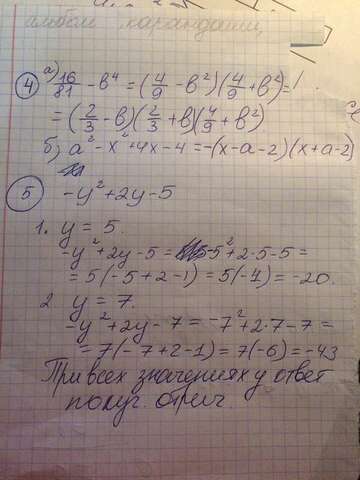 альбом карандаши,
④ а) 16/81 - в⁴ = (4/9 - в²)(4/9 + в²) =
= (2/3 - в)(2/3 + в)(4/9 + в²)
б) а² - х² + 4х - 4 = -(х - а - 2)(х + а - 2)
⑤ -y² + 2y - 5
1. y = 5.
-y² + 2y - 5 = -5² + 2·5 - 5 =
= 5(-5 + 2 - 1) = 5(-4) = -20.
2 y = 7.
-y² + 2y - 7 = -7² + 2·7 - 7 =
= 7(-7 + 2 - 1) = 7(-6) = -43
При всех значениях y ответ
получ. отрич.